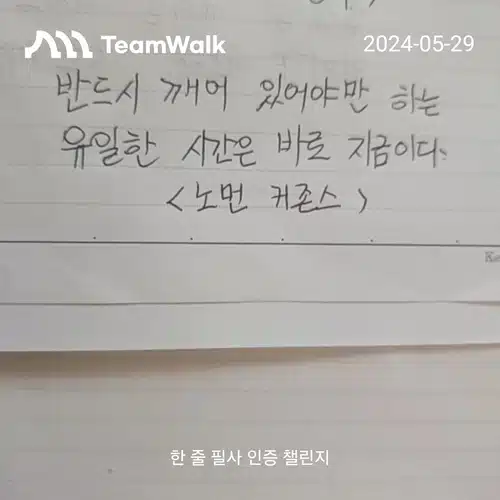 TeamWalk
2024-05-29
반드시 깨어 있어야만 하는
유일한 시간은 바로 지금이다.
<노먼 커존스>
한 줄 필사 인증 챌린지